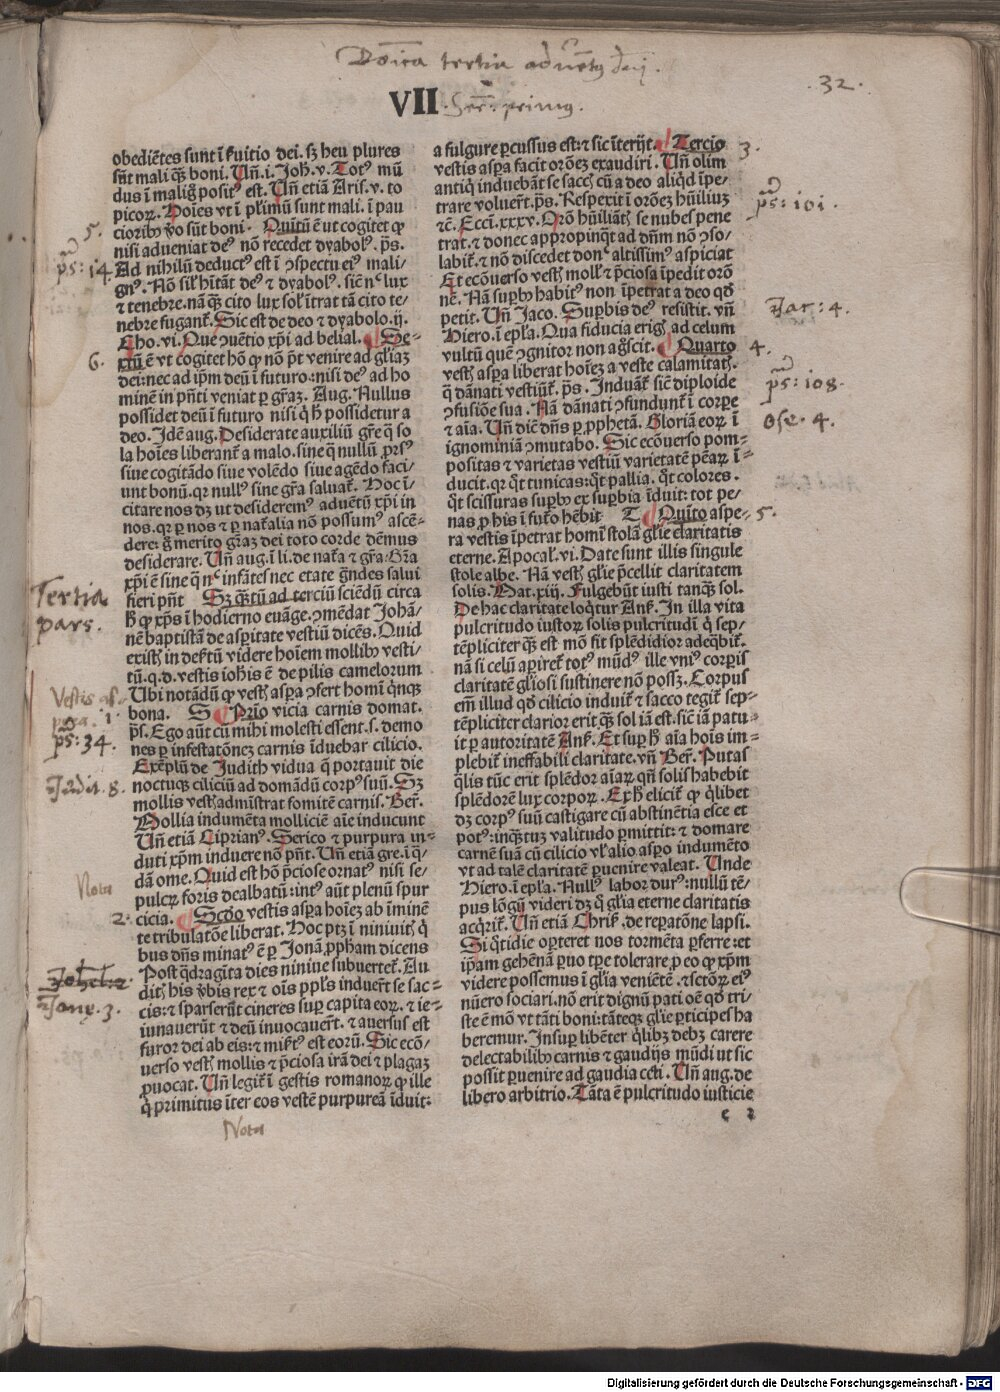 Do͞ica tertia advēt9 dn̄j.
VII . Ser̄. primus.
32.
obediētes sunt ī ẜuitio dei. sꝫ heu plures
sūt mali qꝫ boni. Uñ .i. Joh. v. Tot9 mū
dus ī maliḡ posit9 est. Uñ etiā Aris. v. to
picoꝝ. Hoīes vt ī pl'imū sunt mali. ī pau
ciorib9 v̄o sūt boni. Quitū ē ut cogitet ꝙ
nisi adueniat de9 nō recedet dyabol9. p̄s.
Ad nihilū deduct9 est ī ↄspectu ei9 mali/
gn9. Nō sil' hītāt de9 ⁊ dyabol9. siē n9 lux
⁊ tenebre. nā qꝫ cito lux sol' ītrat tā cito te/
nebre fugant᷑. Sic est de deo ⁊ dyabolo. ij.
Cho. vi. Que ↄuētio xp̄i ad belial. Se-
xtū ē vt cogitet hō ꝙ nō p̄t venire ad gl'iaꝫ
dei: nec ad ip̄m deū ī futuro: nisi de9 ad ho
minē in p̄ñti veniat ꝑ gr̄aꝫ. Aug. Nullus
possidet deū ī futuro nisi q̇ hͦ possidetur a
deo. Idē aug. Desiderate auxiliū gr̄e q̄ so
la hoīes liberant᷑ a malo. sine q̄ nullū ꝓrs9
siue cogitādo siue volēdo siue agēdo faci/
unt bonū. qꝛ null9 sine gr̄a saluat᷑. Hoc ī/
citare nos dꝫ ut desiderem9 aduētū xp̄i in
nos. qꝛ ꝑ nos ⁊ ꝑ nat᷑alia nō possum9 ascē-
dere: ḡ merito gr̄aꝫ dei toto corde dēmus
desiderare. Uñ aug. ī li. de nat᷑a ⁊ gr̄a: Gr̄a
xp̄i ē sine q̄ nͨ infātes nec etate g̈ndes salui
fieri pñt Sꝫ q̄tū ad terciū sciēdū circa
hͦ ꝙ xp̄s ī hodierno euāge. ↄmēdat Johā/
nē baptistā de asp̄itate vestiū dicēs. Quid
existꝭ in de᷑tū videre hoīem mollib9 vesti/
tū. q.d. vestis ioh̄is ē de pilis camelorum
Ubi notādū ꝙ vestꝭ asp̄a ↄsert homī q̇nqꝫ
bona. S Prīo vicia carnis domat.
p̄s. Ego aūt cū mihi molesti essent. s. demo
nes ꝑ infestatōneꝫ carnis īduebar cilicio.
Exēplū de Judith vidua q̄ portauit die
noctuqꝫ ciliciū ad domādū corp9 suū. Sꝫ
mollis vestꝭ admīstrat fomitē carnis. Ber̄.
Mollia indumēta molliciē aīe inducunt
Uñ etiā Ciprian9. Serico ⁊ purpura in-
duti xp̄m induere nō pñt. Uñ etiā gre. ī q̇/
dā ome. Quid est hō p̄ciose ornat9 nisi se/
pulcꝝ foris dealbatū: int9 aūt plenū spur
cicia. Scd̄o vestis asp̄a hoīeꝫ ab īminē
te tribulatōe liberat. Hoc ptꝫ ī niniuitꝭ q̇
bus dñs minat9 ē ꝑ Jonā ꝓpham dicens
Post q̈dragīta dies niniue subuertet᷑. Au
ditꝭ his v̄bis rex ⁊ oīs ppl's induer̄t se sac-
cis: ⁊ sparserūt cineres sup̄ capita eoꝝ. ⁊ ie-
iunauerūt ⁊ deū inuocauer̄t. ⁊ auersus est
furor dei ab eis: ⁊ mis᷑t9 est eorū. Sic ecō/
uerso vestꝭ mollis ⁊ p̄ciosa irā dei ⁊ plagaꝫ
ꝓuocat. Uñ legit᷑ ī gestis romanoꝝ ꝙ ille
q̇ primitus īter eos vestē purpureā īduit:
a fulgure ꝑcussus est: ⁊ sic īterijt. Tercio
vestis asp̄a facit orōeꝫ exaudiri. Uñ olim
antiq̇ induebāt se saccꝭ cū a deo aliqd̄ īpe-
trare voluer̄t. p̄s. Respexit ī orōeꝫ hūiliuꝫ
⁊c̄. Ecci. xxxv. Orō hūiliātꝭ se nubes pene
trat. ⁊ donec appropinq̄t ad dñm nō ↄso/
labit᷑. ⁊ nō discedet donͨ altissim9 aspiciat
Et ecōuerso vestꝭ moll' ⁊ p̄ciosa īpedit orō
nē. Nā sup̄b9 habit9 non īpetrat a deo qd̄
petit. Uñ Jaco. Sup̄bis de9 resistit. vñ
Hiero. ī ep̄la. Qua fiducia erigꝭ ad celum
vultū quē ↄgnitor non ag̈scit. Quarto
vestꝭ asp̄a liberat hoīeꝫ a veste calamitatꝭ.
q̄ dānati vestiūt᷑. p̄s. Induāt᷑ siē diploide
ↄfusiōe sua. Nā dānati ↄfundunt᷑ ī corꝑe
⁊ aīa. Uñ diē dñs ꝑ ꝓphetā. Gloriā eoꝝ ī
ignominiā ↄmutabo. Sic ecōuerso pom-
positas ⁊ varietas vestiū varietatē pēaꝝ ī-
ducit. qꝛ q̇t tunicas: q̇t pallia. q̇t colores.
q̇t scissuras sup̄b9 ex sup̄bia īduit: tot pe/
nas ꝓ his ī fut᷑o hēbit T Quīto aspe-
ra vestis īpetrat homī stolā gl'ie claritatis
eterne. Apocal'. vi. Date sunt illis singule
stole albe. Nā vestꝭ gl'ie p̄cellit claritatem
solis. Mat. xiij. Fulgebūt iusti tanqꝫ sol.
De hac claritate loq̇tur Ans. In illa vita
pulcritudo iustoꝝ solis pulcritudī q̄ sep/
tēpliciter qꝫ est mō sit splēdidior adeq̄bit᷑.
nā si celū aꝑiret᷑ tot9 mūd9 ille vni9 corꝑis
claritatē gl'iosi sustinere nō possꝫ. Corpus
em̄ illud qd̄ cilicio induit᷑ ⁊ sacco tegit᷑ sep-
tēpliciter clarior erit qꝫ sol iā est. siē iā patu-
it ꝑ autoritatē Ans. Et sup̄ hͦ aīa hoīs im-
plebit᷑ ineffabili claritate. vñ Ber̄. Putas
q̄lis tūc erit splēdor aīaꝝ qñ solis habebit
splēdorē lux corpoꝝ. Ex hͦ elicit᷑ ꝙ q̇libet
dꝫ corp9 suū castigare cū abstinētia esce et
pot9: inqꝫtuꝫ valitudo ꝑmittit: ⁊ domare
carnē suā cū cilicio vl' alio asp̄o indumēto
vt ad talē claritatē ꝑuenire valeat. Unde
Hiero. ī ep̄la. Null9 labor dur9: nullū tē/
pus lōgū videri dꝫ q̇ gl'ia eterne claritatis
acq̇rit᷑. Uñ etiā Chris̄. de reparatōne lapsi.
Si q̇tidie oꝑteret nos tormēta ꝑferre: et
ip̄am gehenā ꝑuo tꝑe tolerare ꝓ eo ꝙ xp̄m
videre possemus ī gl'ia veniētē. ⁊ sctōꝝ ei9
nūero sociari. nō erit dignū pati oē qd̄ tri/
ste ē mō vt tāti boni: tāteqꝫ gl'ie ꝑticipes ha
beremur. Insup̄ libēter q̇libꝫ debꝫ carere
delectabilib9 carnis ⁊ gaudijs mūdi ut sic
possit ꝑuenire ad gaudia celi. Uñ aug. de
libero arbitrio. Tāta ē pulcritudo iusticie
c 2
5.
ps: 14
6.
Tertia
pars.
Vestis as-
pera. 1.
ps: 34.
Judit. 8.
Nota
2.
Jone. 3.
Nota
3.
ps: 101.
Jac: 4.
4.
ps: 108.
Ose. 4.
5.
Digitalisierung gefördert durch die Deutsche Forschungsgemeinschaft - DFG